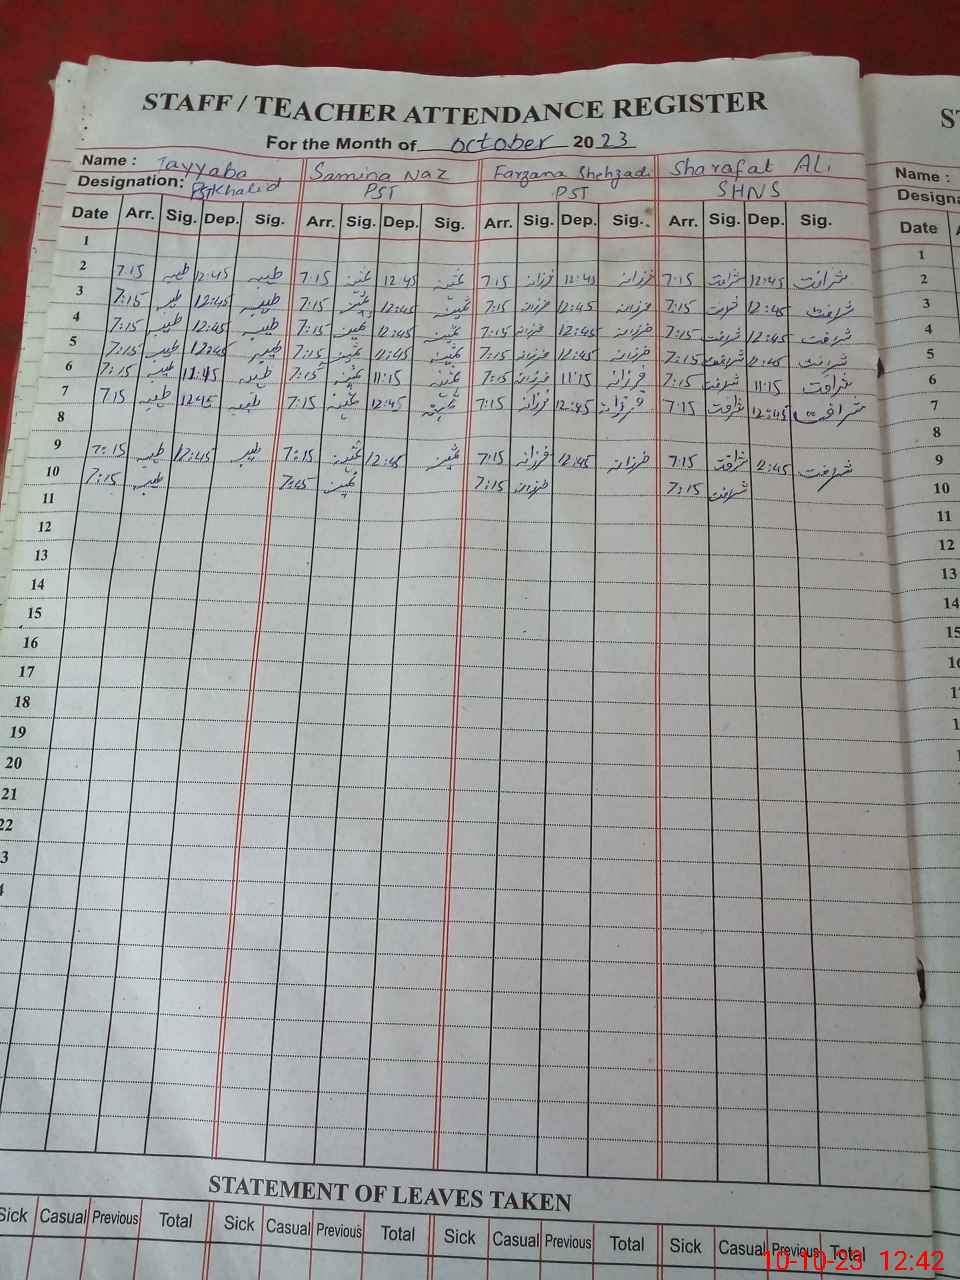 STAFF / TEACHER ATTENDANCE REGISTER
For the Month of October 2023
Name : Tayyaba Samina Naz Farzana Shehzadi Sharafat Ali
Designation: PST Khalid PST PST SHNS
Date Arr. Sig. Dep. Sig. Arr. Sig. Dep. Sig. Arr. Sig. Dep. Sig. Arr. Sig. Dep. Sig.
1
2 7:15 طیبہ 12:45 طیبہ 7:15 ثمینہ 12:45 ثمینہ 7:15 فرزانہ 12:45 فرزانہ 7:15 شرافت 12:45 شرافت
3 7:15 طیبہ 12:45 طیبہ 7:15 ثمینہ 12:45 ثمینہ 7:15 فرزانہ 12:45 فرزانہ 7:15 شرافت 12:45 شرافت
4 7:15 طیبہ 12:45 طیبہ 7:15 ثمینہ 12:45 ثمینہ 7:15 فرزانہ 12:45 فرزانہ 7:15 شرافت 12:45 شرافت
5 7:15 طیبہ 12:45 طیبہ 7:15 ثمینہ 12:45 ثمینہ 7:15 فرزانہ 12:45 فرزانہ 7:15 شرافت 12:45 شرافت
6 7:15 طیبہ 11:45 طیبہ 7:15 ثمینہ 11:15 ثمینہ 7:15 فرزانہ 11:15 فرزانہ 7:15 شرافت 11:15 شرافت
7 7:15 طیبہ 12:45 طیبہ 7:15 ثمینہ 12:45 ثمینہ 7:15 فرزانہ 12:45 فرزانہ 7:15 شرافت 12:45 شرافت
8
9 7:15 طیبہ 12:45 طیبہ 7:15 ثمینہ 12:45 ثمینہ 7:15 فرزانہ 12:45 فرزانہ 7:15 شرافت 12:45 شرافت
10 7:15 طیبہ 7:45 ثمینہ 7:15 فرزانہ 7:15 شرافت
11
12
13
14
15
16
17
18
19
20
21
22
3
STATEMENT OF LEAVES TAKEN
Sick Casual Previous Total Sick Casual Previous Total Sick Casual Previous Total Sick Casual Previous Total
Name :
Date
1
2
3
4
5
6
7
8
9
10
11
12
13
14
15
10-10-23 12:42